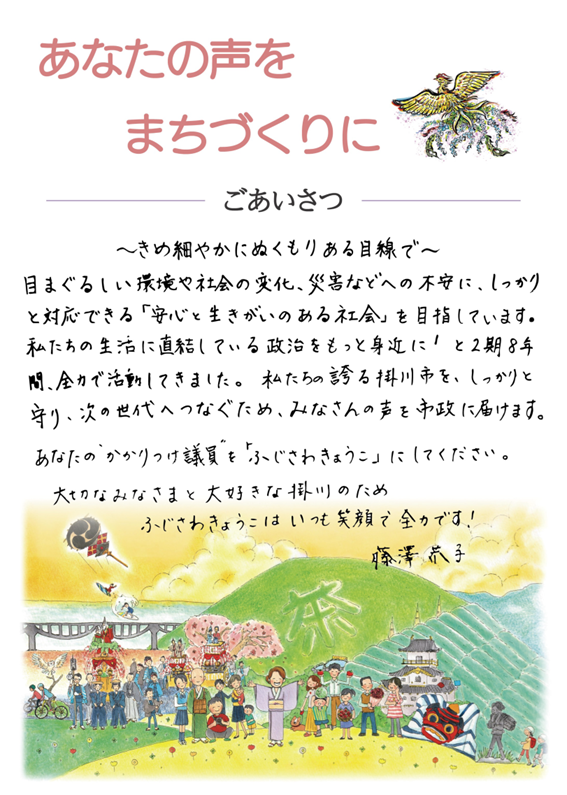 あなたの声を
まちづくりに
ごあいさつ
～きめ細やかにぬくもりある目線で～
目まぐるしい環境や社会の変化、災害などへの不安に、しっかり
と対応できる「安心と生きがいのある社会」を目指しています。
私たちの生活に直結している政治をもっと身近に！と2期8年
間、全力で活動してきました。私たちの誇る掛川市を、しっかりと
守り、次の世代へつなぐため、みなさんの声を市政に届けます。
あなたの“かかりつけ議員”を「ふじさわきょうこ」にしてください。
大切なみなさまと大好きな掛川のため
ふじさわきょうこはいつも笑顔で全力です！
藤澤恭子
茶